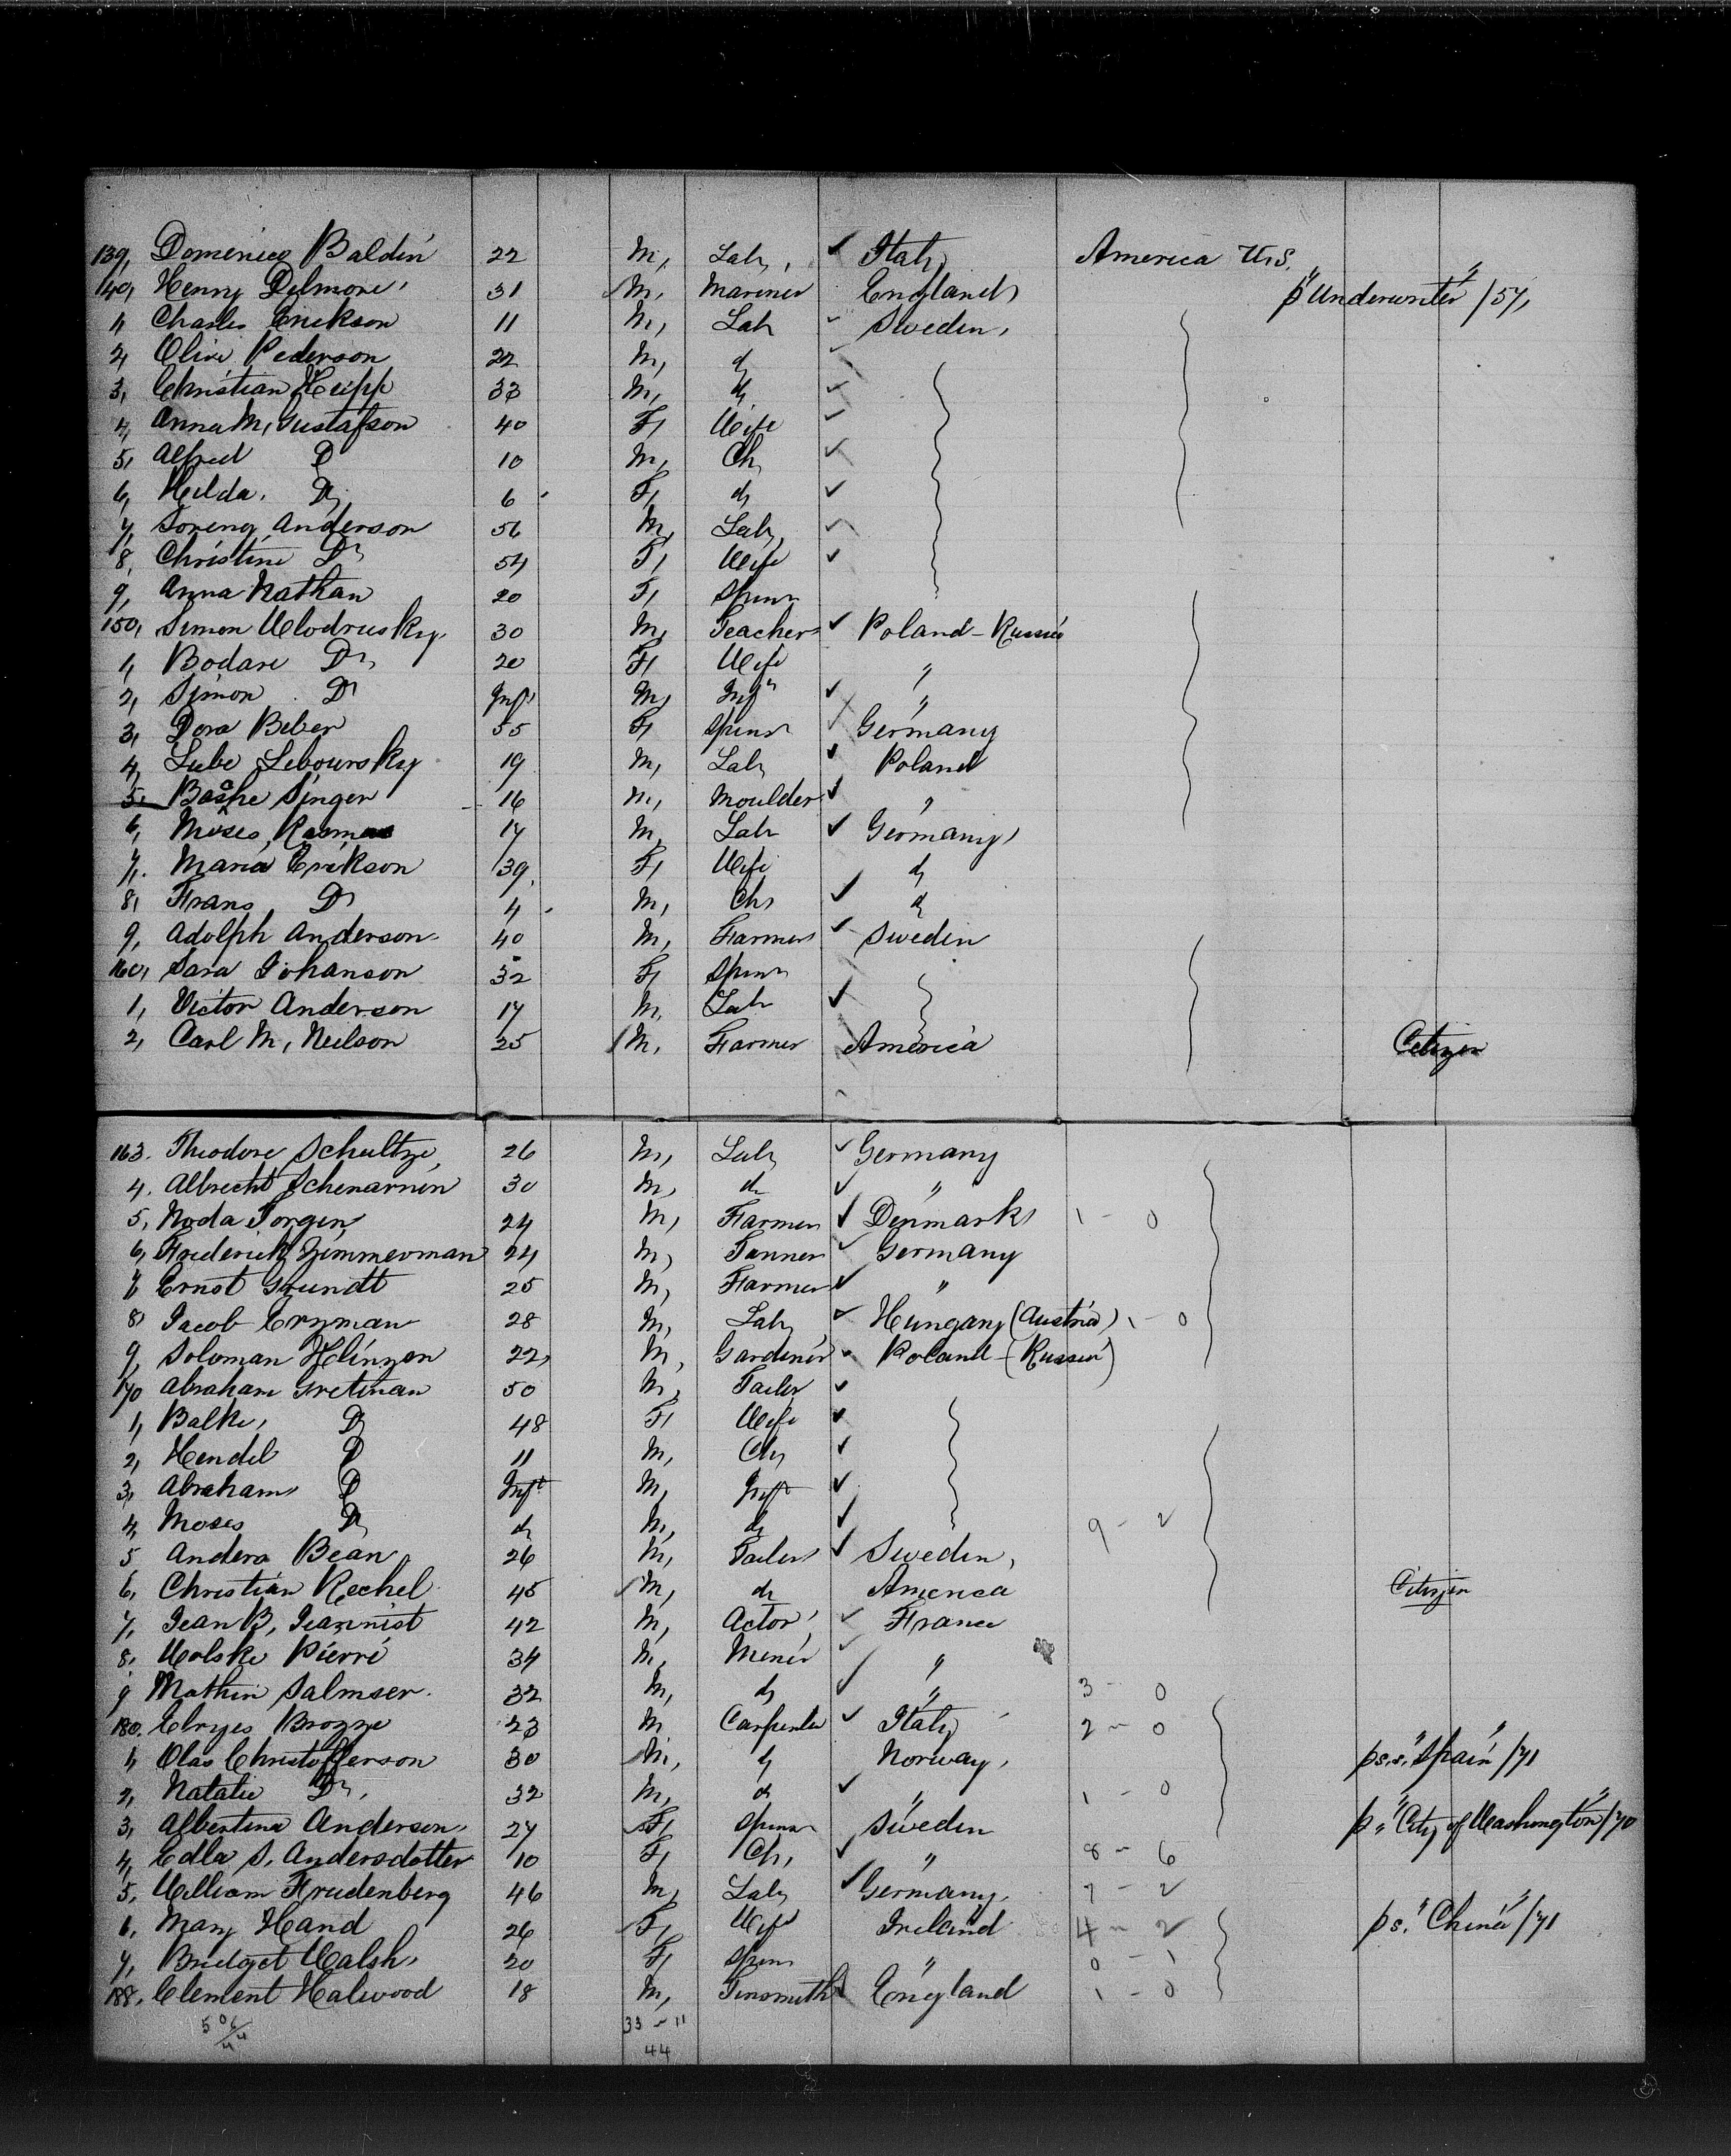 139, Domenico Baldin 22 M, Lab, ✓ Italy America U.S.
140, Henry Delmore 31 ✓ M, Mariner England p "Underwriter" /57,
1, Charles Erickson 11 M, Lab ✓ Sweden,
2, Olive Pederson 22 M, do ✓
3, Christian Heipp 33 M, do ✓
4, Anna M, Gustafson 40 F, Wife ✓
5, Alfred Do 10 M, Ch, ✓
6, Hilda, Do 6 F, do ✓
7, Soreng Anderson 56 M, Lab, ✓
8, Christine Do 54 F, Wife ✓
9, Anna Nathan 20 F, Spinr
150, Simon Wlodrusky 30 M, Teacher ✓ Poland - Russia
1, Bodare Do 20 F, Wife "
2, Simon Do Inft M, Inft ✓ "
3, Dora Beber 55 F, Spinsr ✓ Germany
4, Lube Leboursky 19 M, Lab ✓ Poland
5, Singer 16 M, Moulder ✓ "
6, Moses 17 M, Lab ✓ Germany,
7, Maria Erikson 39, F, Wife do
8, Frans Do 4 M, Ch, ✓ do
9, Adolph Anderson 40 M, Farmer ✓ Sweden
160, Sara Johanson 32 F, Spinr
1, Victor Anderson 17 M, Lab ✓
2, Carl M, Neilson 25 ✓ M, Farmer America Citizen
163. Theodore Schultze, 26 M, Lab ✓ Germany
4. Albrecht Schenarnen 30 M, do ✓ "
5, Noda Jorgen 24 M, Farmer ✓ Denmark, 1 - 0
6, Frederick Zimmerman 24 M, Tanner ✓ Germany
7 Ernst Grundt 25 M, Farmer ✓ "
8, Jacob Eryman 28 M, Lab ✓ Hungary (Austria) 1 - 0
9, Soloman Helinzen 22, M, Gardiner ✓ Poland - (Russia)
170 Abraham Gretman 50 M, Tailor ✓
1, Balke, Do 48 F, Wife ✓
2, Hendel Do 11 M, Ch, ✓
3, Abraham Do Inft M, Inft ✓
4, Moses Do do M, do ✓ 9 - 2
5 Anders Bean 26 M, Tailor ✓ Sweden,
6, Christian Rechel 45 ✓ M, do America Citizen
7, Jean B, Jeannist 42 M, Actor, ✓ France
8, Wolske Pierre 34 M, Miner ✓ "
9 Mathin Salmser. 32 M, do ✓ " 3 - 0
180. Elryes Brozze 23 M Carpenter ✓ Italy 2 - 0
1, Olas Christofferson 30 ✓ M, do Norway, p s.s. "Spain" /71
2, Natalie Do, 32 M, do ✓ " 1 - 0
3, Albertina Anderson, 27 ✓ F, Spinsr Sweden p "City of Washington" /70
4, Edla S. Andersdotter 10 F, Ch, ✓ " 8 - 6
5, William Frudenberg 46 M, Lab ✓ Germany, 7 - 2
6, Mary Hand 26 ✓ F, Wife Ireland 4 - 2 p s. "China" /71
7, Bridget Walsh, 20 F, Spin "  0 - 1
188. Clement Halwood 18 M, Tinsmith ✓ England 1 - 0
506/44 33 - 11
44